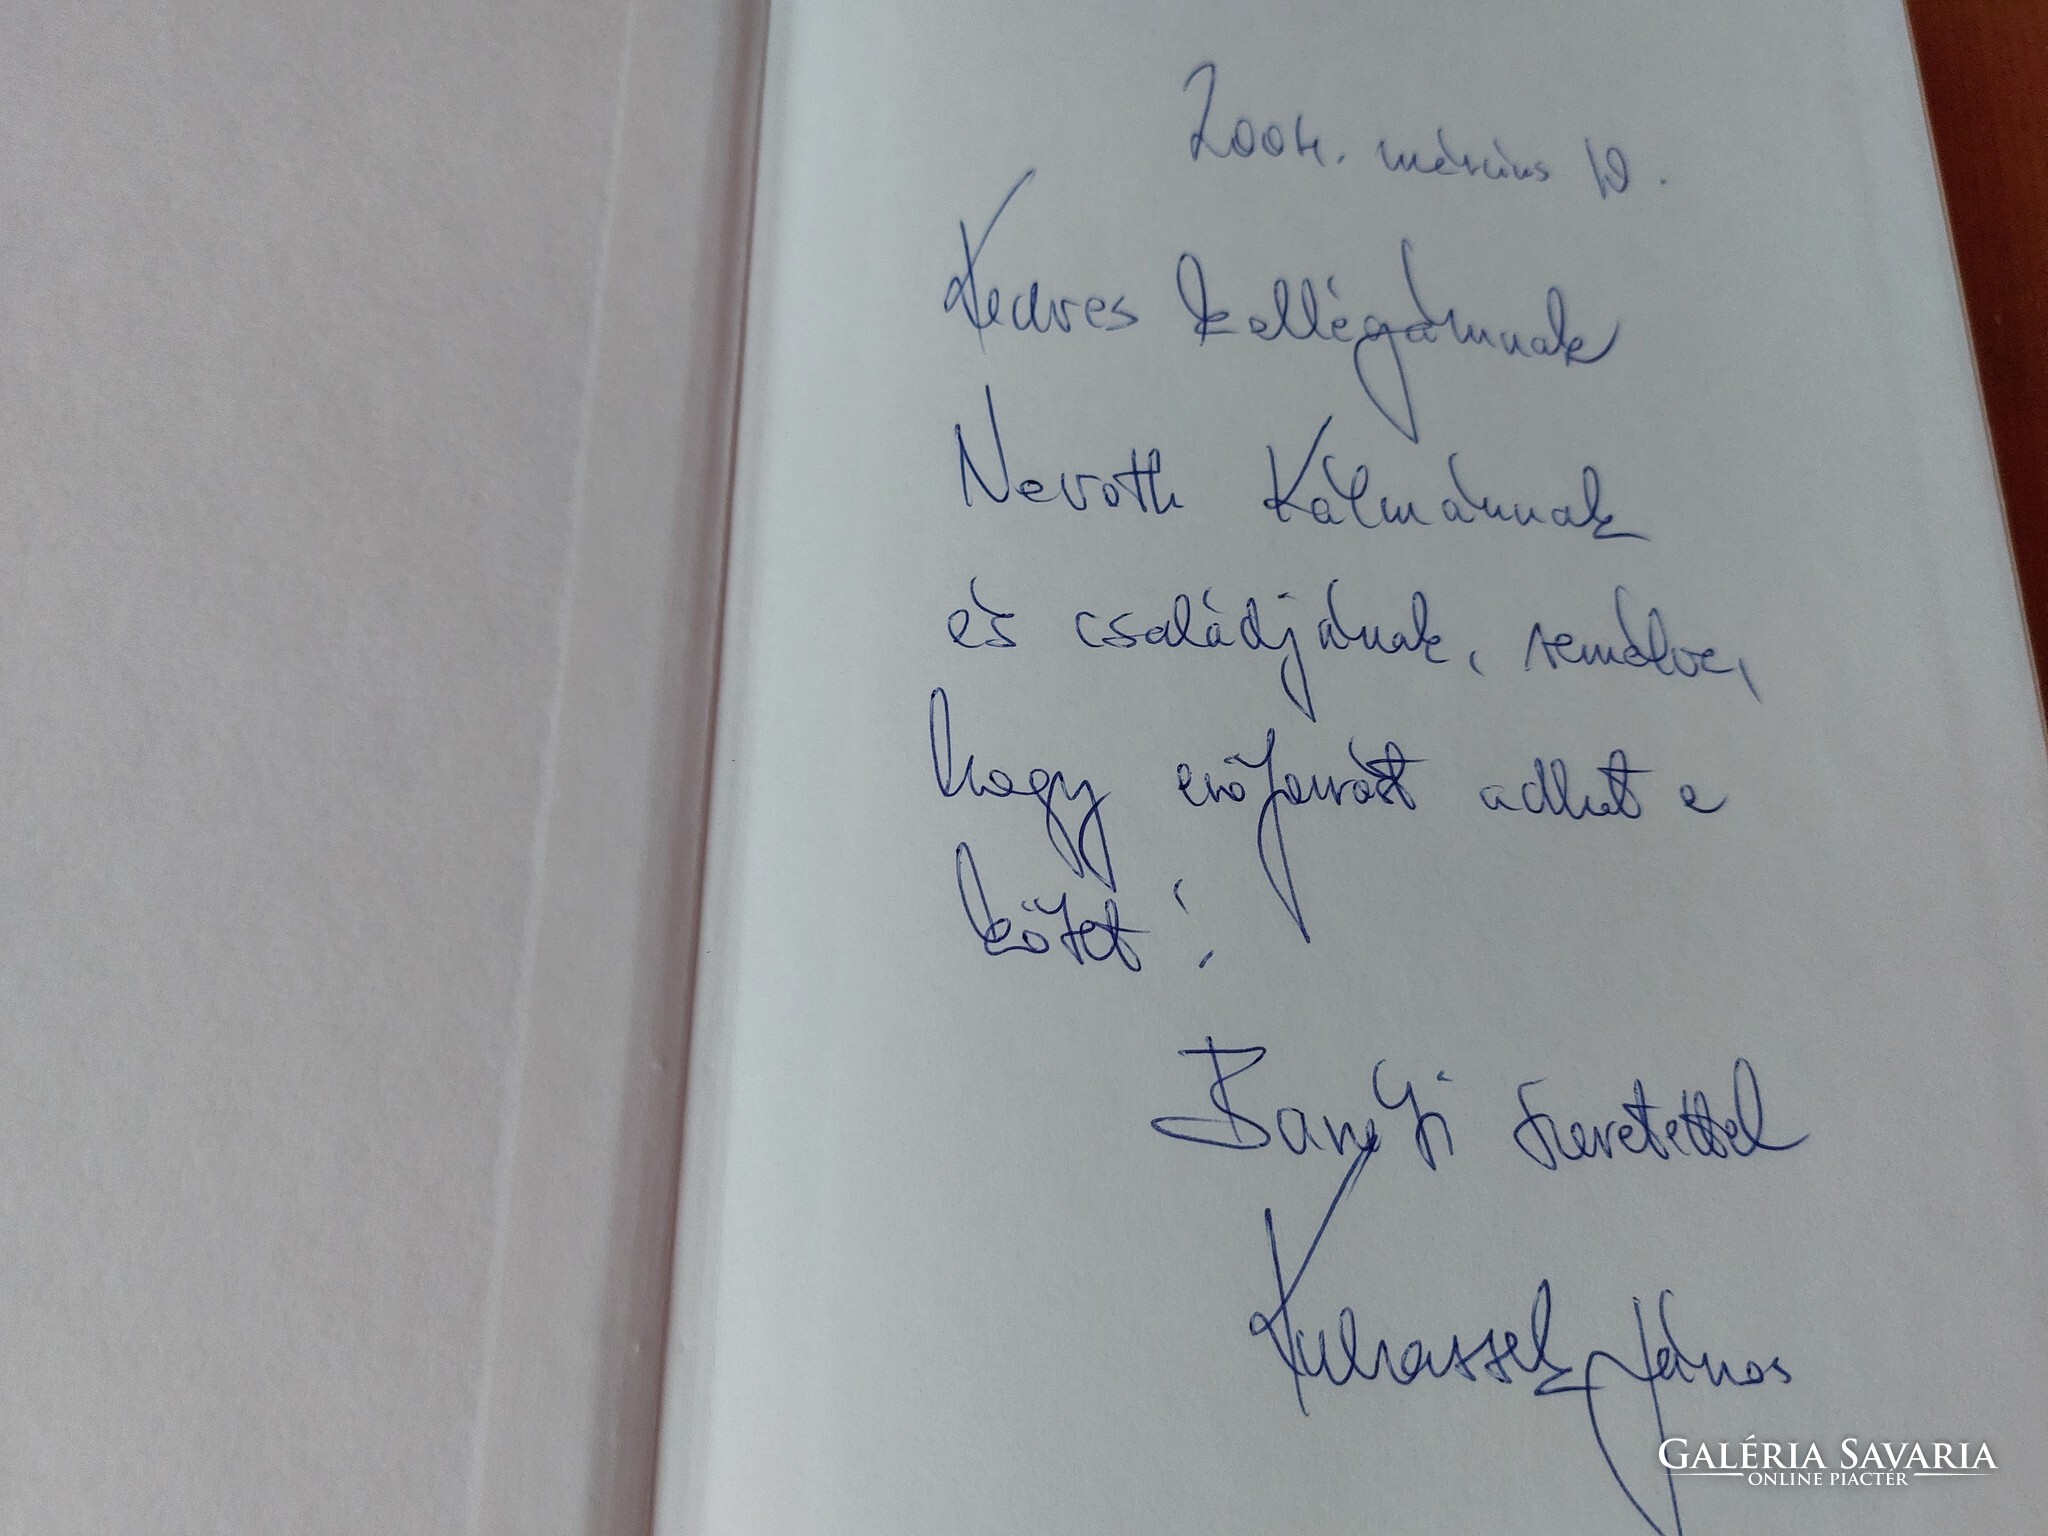 2004. március 10.
Kedves kollégámnak
Nevoth Kálmánnak
és családjának, remélve,
hogy erőforrást adhat e
kötet!
Baráti szeretettel
Kuhassek János
GALÉRIA SAVARIA
ONLINE PIACTÉR